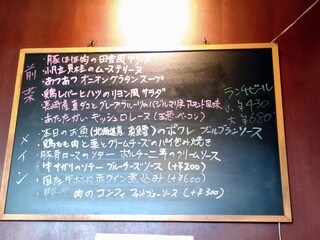 前菜
・豚ほほ肉の田舎風テリーヌ
・小帆立貝のムーステリーヌ
・あつあつオニオングラタンスープ
・鶏レバーとハツのリヨン風サラダ
・長崎産真ダコとグレープフルーツのバジルマリネ
・あたたかいキッシュロレーヌ
メイン
・本日のお魚(北海道産 真鱈)のポワレ ブールブランソース
・鶏もも肉と栗とクリームチーズのパイ包み焼き
・豚肩ロースのソテー ポルチーニ茸のクリームソース
・牛サガリのソテー ブルーチーズソース (+¥200)
・国産牛ホホ肉 赤ワイン煮込み (+¥600)
肉のコンフィ (+¥300)
ランチビール
小 ¥430
大 ¥680